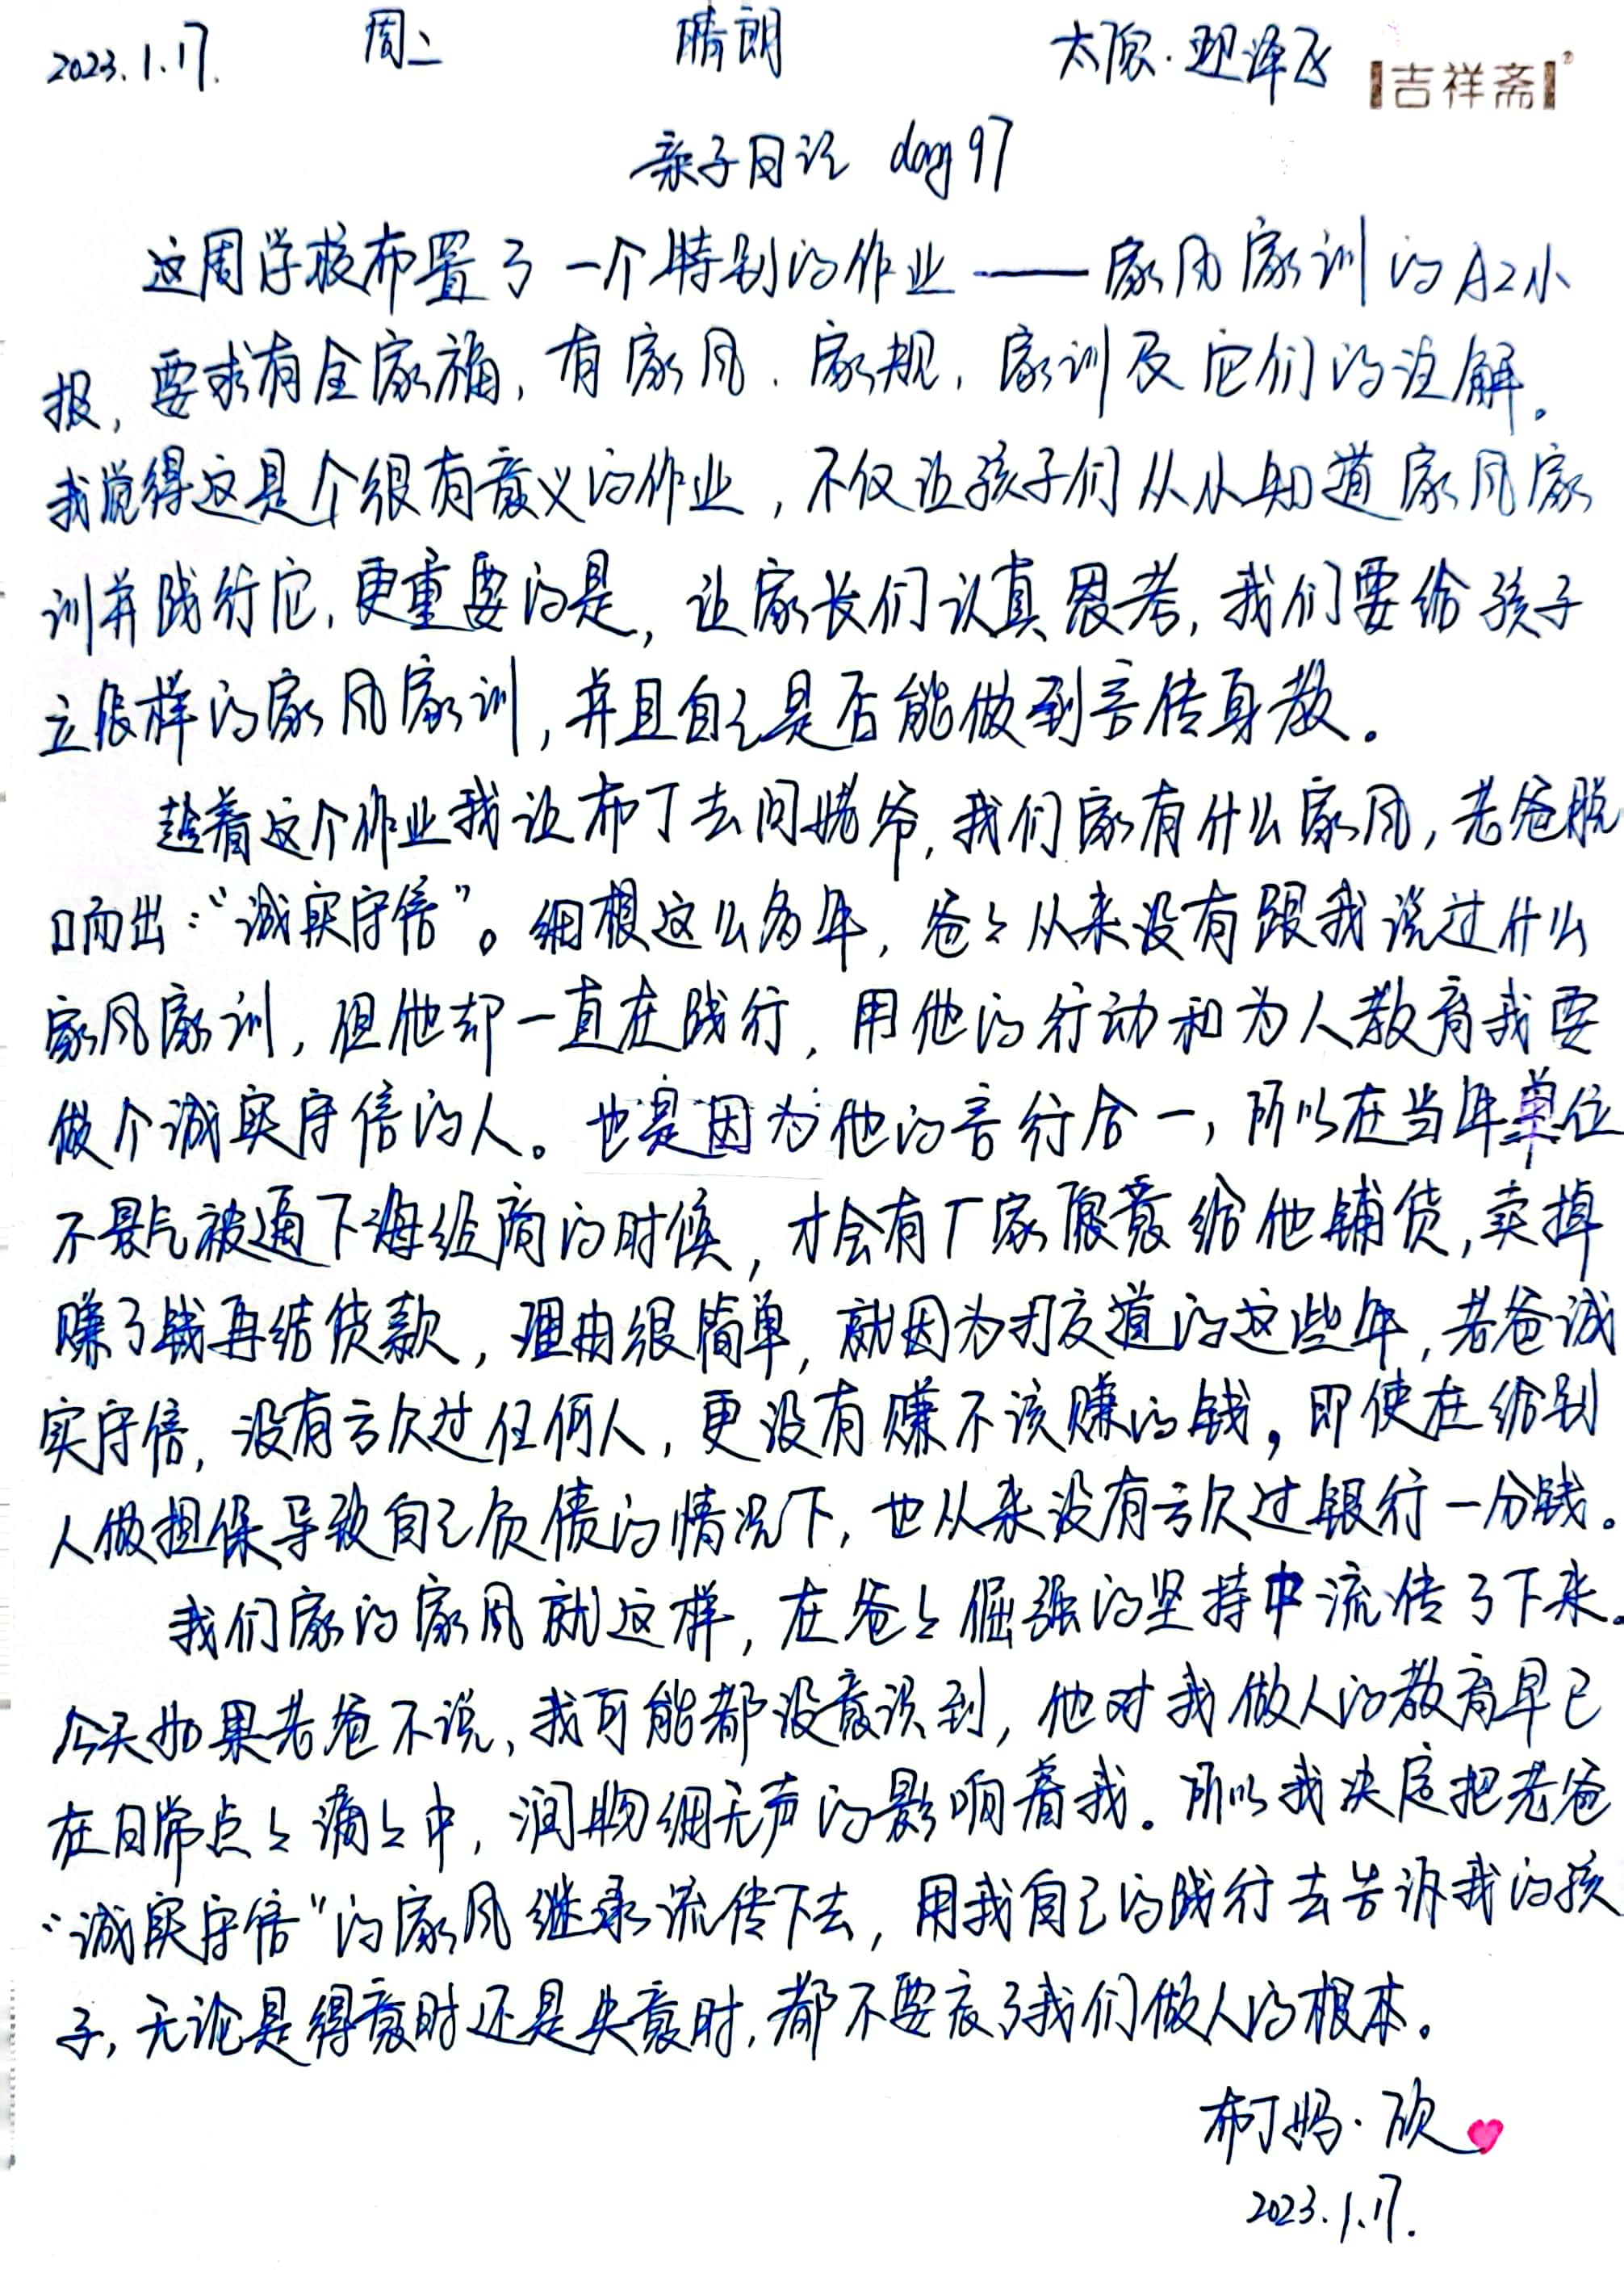 2023.1.17. 周二 晴朗 太原·迎泽区 吉祥斋
亲子日记 day97
这周学校布置了一个特别的作业——家风家训的A2小
报,要求有全家福,有家风、家规、家训及它们的注解。
我觉得这是个很有意义的作业,不仅让孩子们从小知道家风家
训并践行它,更重要的是,让家长们认真思考,我们要给孩子
立怎样的家风家训,并且自己是否能做到言传身教。
趁着这个作业我让布丁去问姥爷,我们家有什么家风,老爸脱
口而出:“诚实守信”。细想这么多年,爸爸从来没有跟我说过什么
家风家训,但他却一直在践行,用他的行动和为人教育我要
做个诚实守信的人。也是因为他的言行合一,所以在当年单位
不景气被逼下海经商的时候,才会有厂家愿意给他铺货,卖掉
赚了钱再结货款,理由很简单,就因为打交道的这些年,老爸诚
实守信,没有亏欠过任何人,更没有赚不该赚的钱,即使在给别
人做担保导致自己负债的情况下,也从来没有亏欠过银行一分钱。
我们家的家风就这样,在爸爸倔强的坚持中流传了下来。
今天如果老爸不说,我可能都没意识到,他对我做人的教育早已
在日常点点滴滴中,润物细无声的影响着我。所以我决定把老爸
“诚实守信”的家风继承流传下去,用我自己的践行去告诉我的孩
子,无论是得意时还是失意时,都不要丢了我们做人的根本。
布丁妈·欣
2023.1.17.